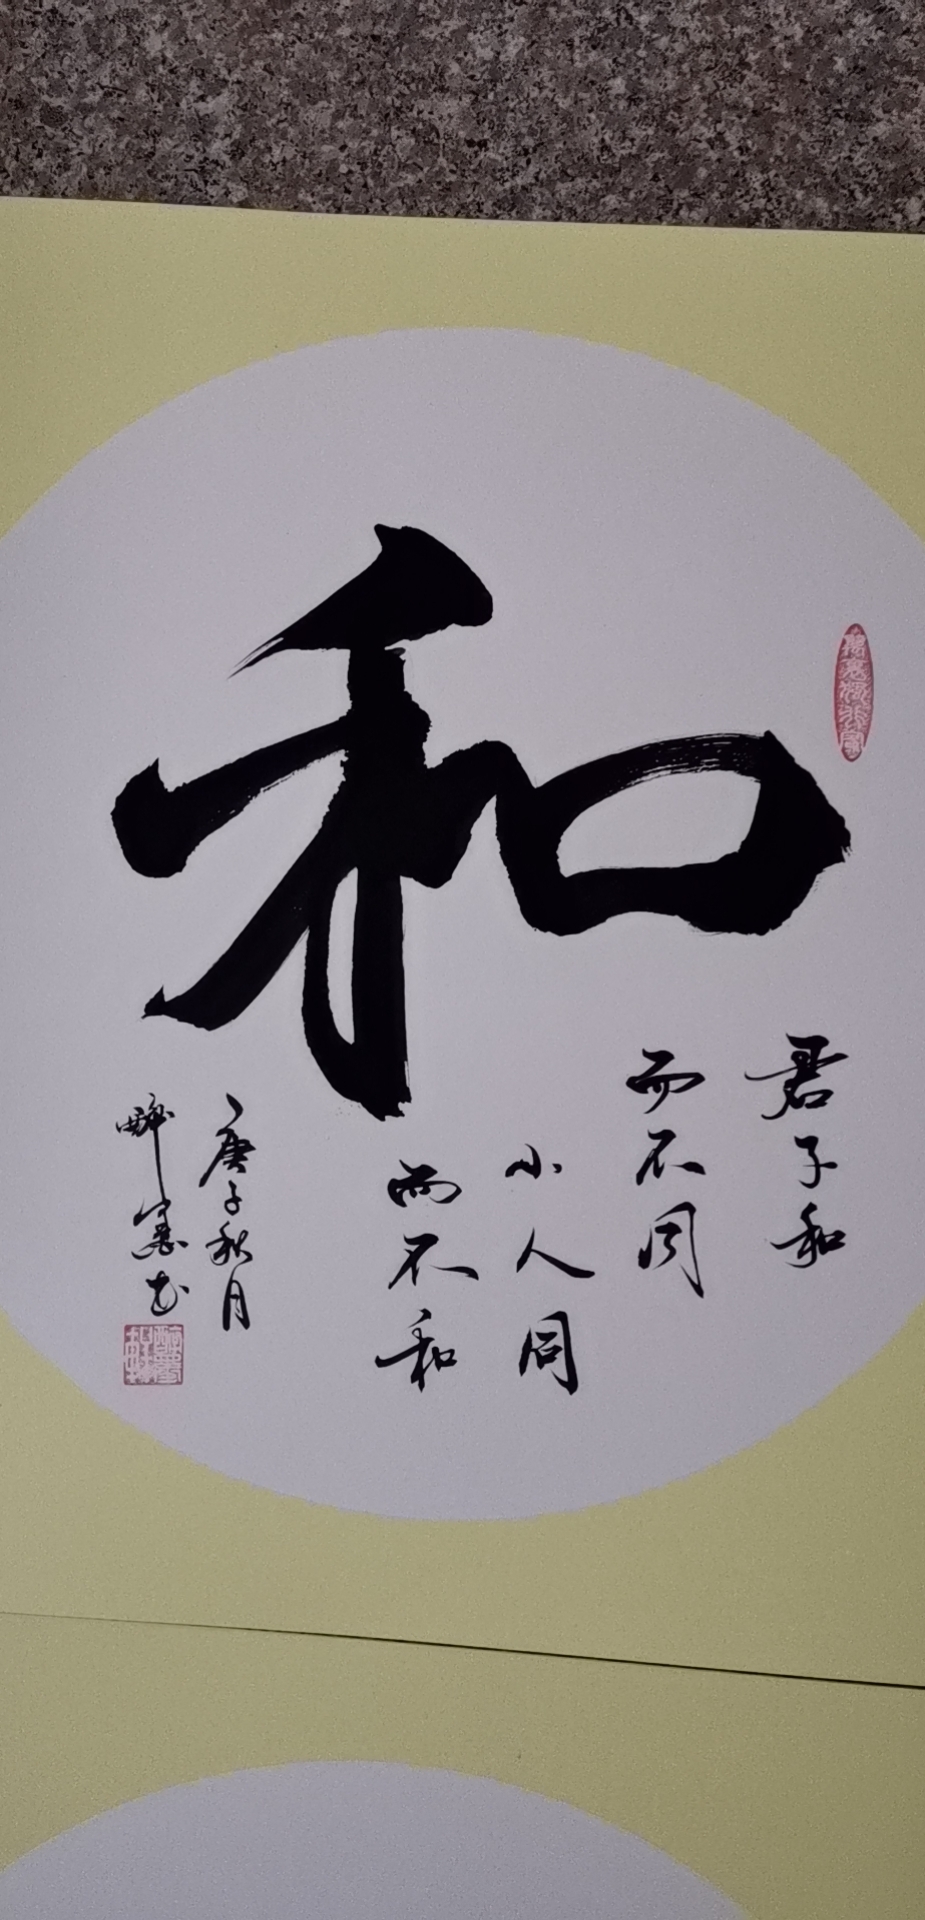 和
君子和
而不同
小人同
而不和
庚子秋月